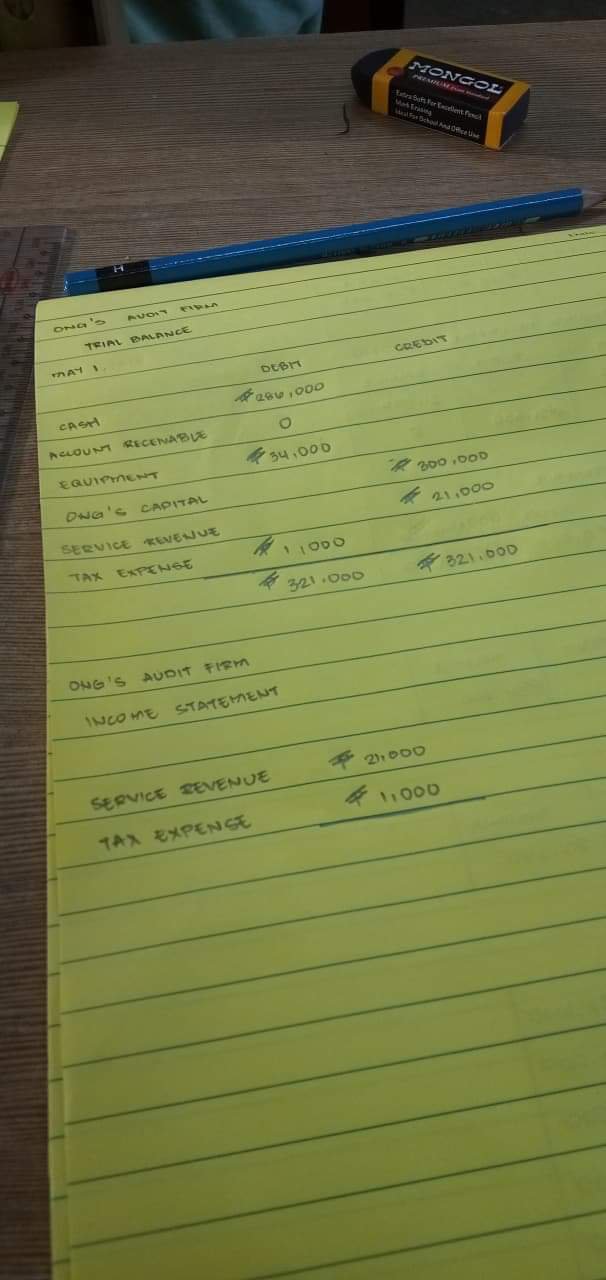 MONGOL
PREMIUM
Extra Soft For Excellent Pencil
Mark Erasing
Ideal For School And Office Use
H
ONG'S AUDIT FIRM
TRIAL BALANCE
MAY 1,
DEBIT CREDIT
CASH ₱286,000
ACCOUNT RECEIVABLE 0
EQUIPMENT ₱34,000
ONG'S CAPITAL ₱300,000
SERVICE REVENUE ₱21,000
TAX EXPENSE ₱1,000
₱321,000 ₱321,000
ONG'S AUDIT FIRM
INCOME STATEMENT
SERVICE REVENUE ₱21,000
TAX EXPENSE ₱1,000